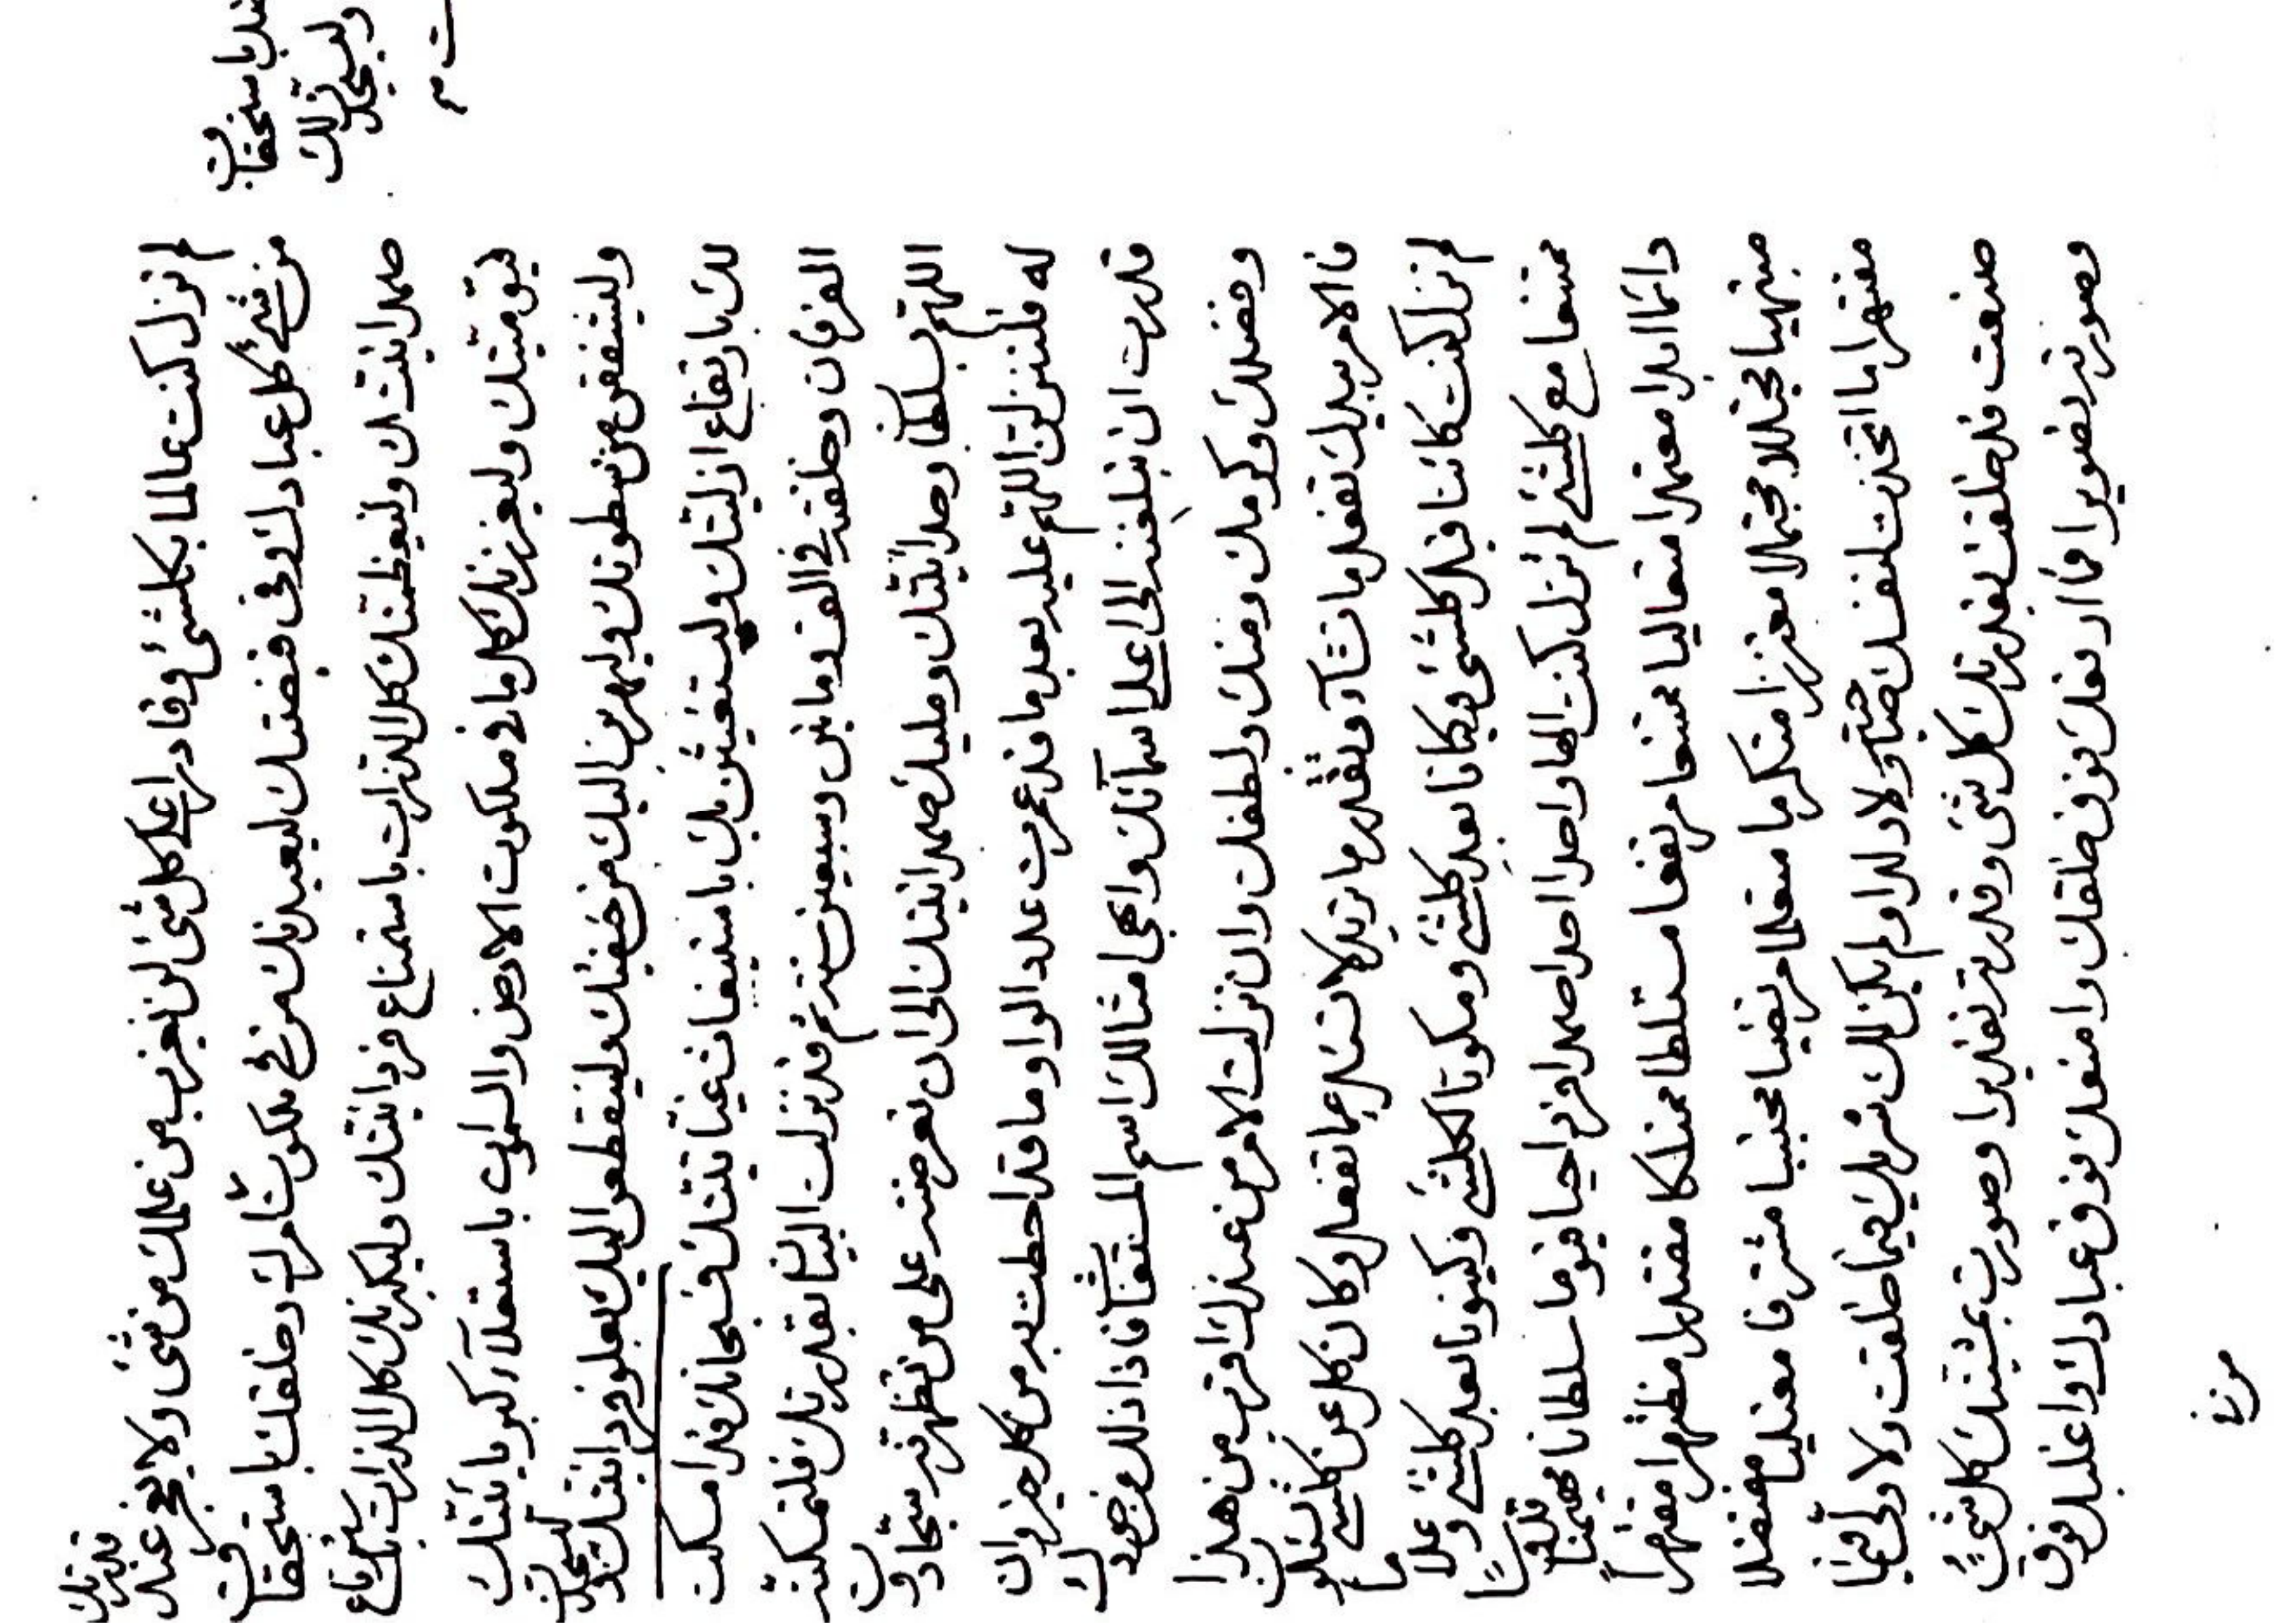 لم تزل كنت عالما بكلشئ وقادرا على كل شئ لن يعزب من علمك من شئ ولا يعجز عند قدرتك
من شئ كل عبادك وفى قبضتك ليعبدنك من فى ملكوت امرك وخلقك باستحقاق
صمدانيتك وليعظمنك كل الذرات باستمناع فردانيتك وليكبرنك كل الذرات بارتفاع
قيوميتك وليعززنك كل ما فى ملكوت الارض والسموات باستقلال كبريائيتك
وليشفقن من سطوتك وليهربن اليك من خيفتك ولينقطعوا اليك بعلو فردانيتك وليسجدن
لك بارتفاع ازليتك وليستغيثن بك باستغاث غياثيتك فسبحانك قد امسكت
الفرقان وخلقه فى الف وماتين وسبعين سنة ثم قد نزلت البيان بقدرتك فلتمكننه
اللهم بسلطان وحدانيتك ومليك صمدانيتك الى ان تعرضنه على من تظهرنه
له فلتنزلن اللهم عليه بعد ما قد عمرت عدد الواو ما قد احطت به من كل خير وان
قدرت ان تبلغنه الى اعلى اسمآئك وابهى امثالك اسم المستغاث فاذا ذلك من جودك
وفضلك وكرمك ومنك ولطفك وان نزلت الامر من عندك اقرب من هذا
فالامر بيديك تفعل ما تشآء وتقدر ما تريد لا تسئل عما تفعل وكان كل عن كلشئ
لم تزل كنت كائنا قبل كلشئ وكيانا بعد كلشئ ومكونا لكلشئ وكينونا بعد كلشئ
ممتنعا مع كلشئ لم تزل كنت الها واحدا احدا صمدا فردا حيا قيوما سلطانا مهيمنا قدوسا
دائما ابدا معتمدا متعاليا ممتنعا مرتفعا متسلطا ممتلكا مقتدرا مظتهرا مقتهرا
مبتهيا مجتللا مجتملا معتززا متكرما متعظما مرتضيا محتبيا مشترفا معتليا مفتضلا
ما اتخذت لنفسك صاحبة ولا ولدا ولم يكن لك شريك فيما خلقت ولا ولى فيما
صنعت قد خلقت بقدرتك كل شئ وقدرته تقديرا وصورت بمشيتك كل شئ
وصورته تصويرا فما ارفعك فوق خلقك وامنعك فوق عبادك واغلبك فوق